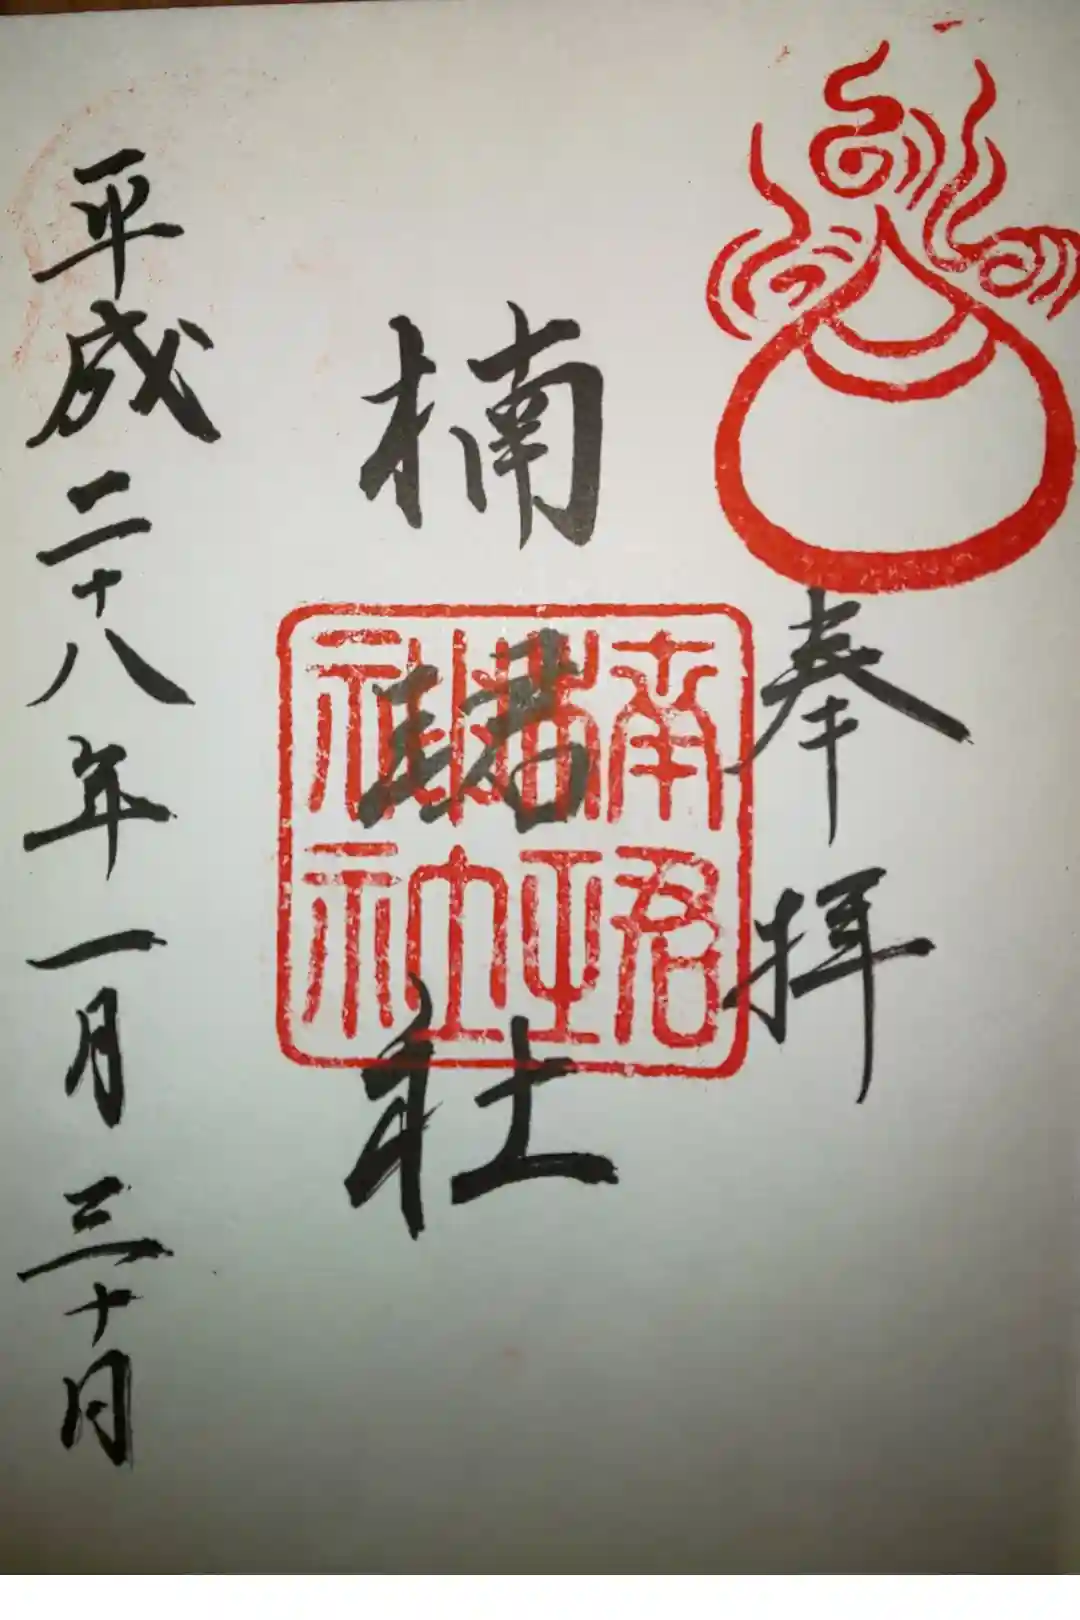 奉拝
楠珺社
楠珺
神社
平成二十八年一月三十日